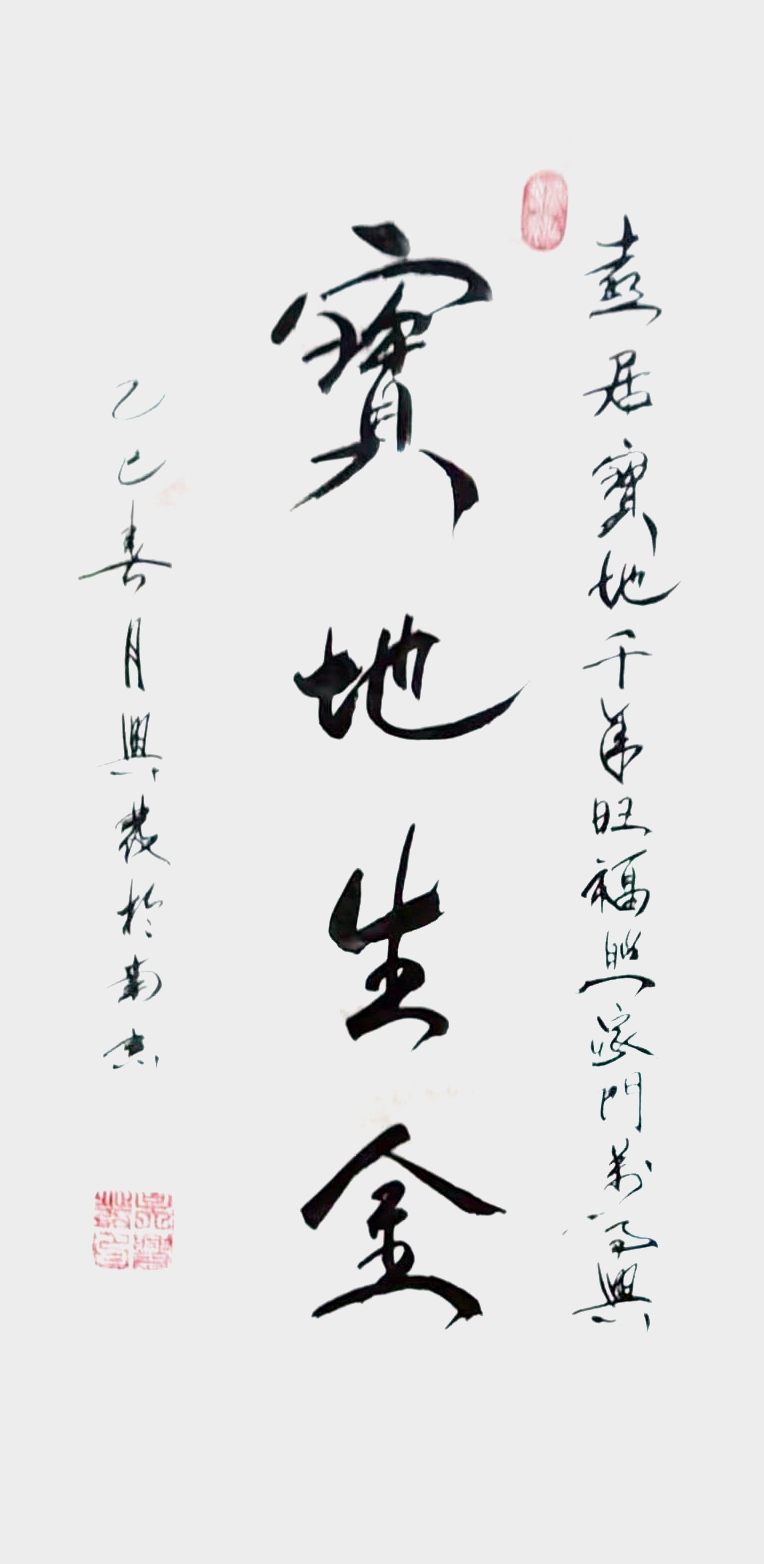 喜居寶地千年旺福照家門萬事興
寶地生金
乙巳春月興發於南京